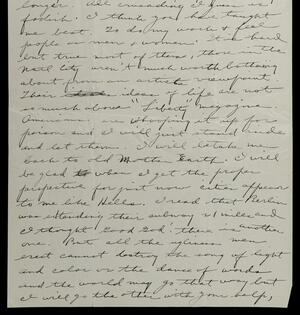 longer. All crusading I fear is
foolish. I think you have taught
me best. To do my work & feel
people as men & women. It is hard
but true most of them, those in the
Nail City aren't much worth bothering
about from an artist's viewpoint.
Their ideas of life are not
so much above "Liberty" magazine.
Americans are whooping it up for
poison and I will just stand aside
and let them. I will betake me
back to old Mother Earth. I will
be glad when I get the proper
perspective for just now cities appear
to me like Hells. I read that Berlin
was extending their subway 21 miles and
I thought Good God there is another
one. But all the ugliness men
erect cannot destroy the song of light
and color or the dance of words
and the world may go that way but
I will go the other with your help,